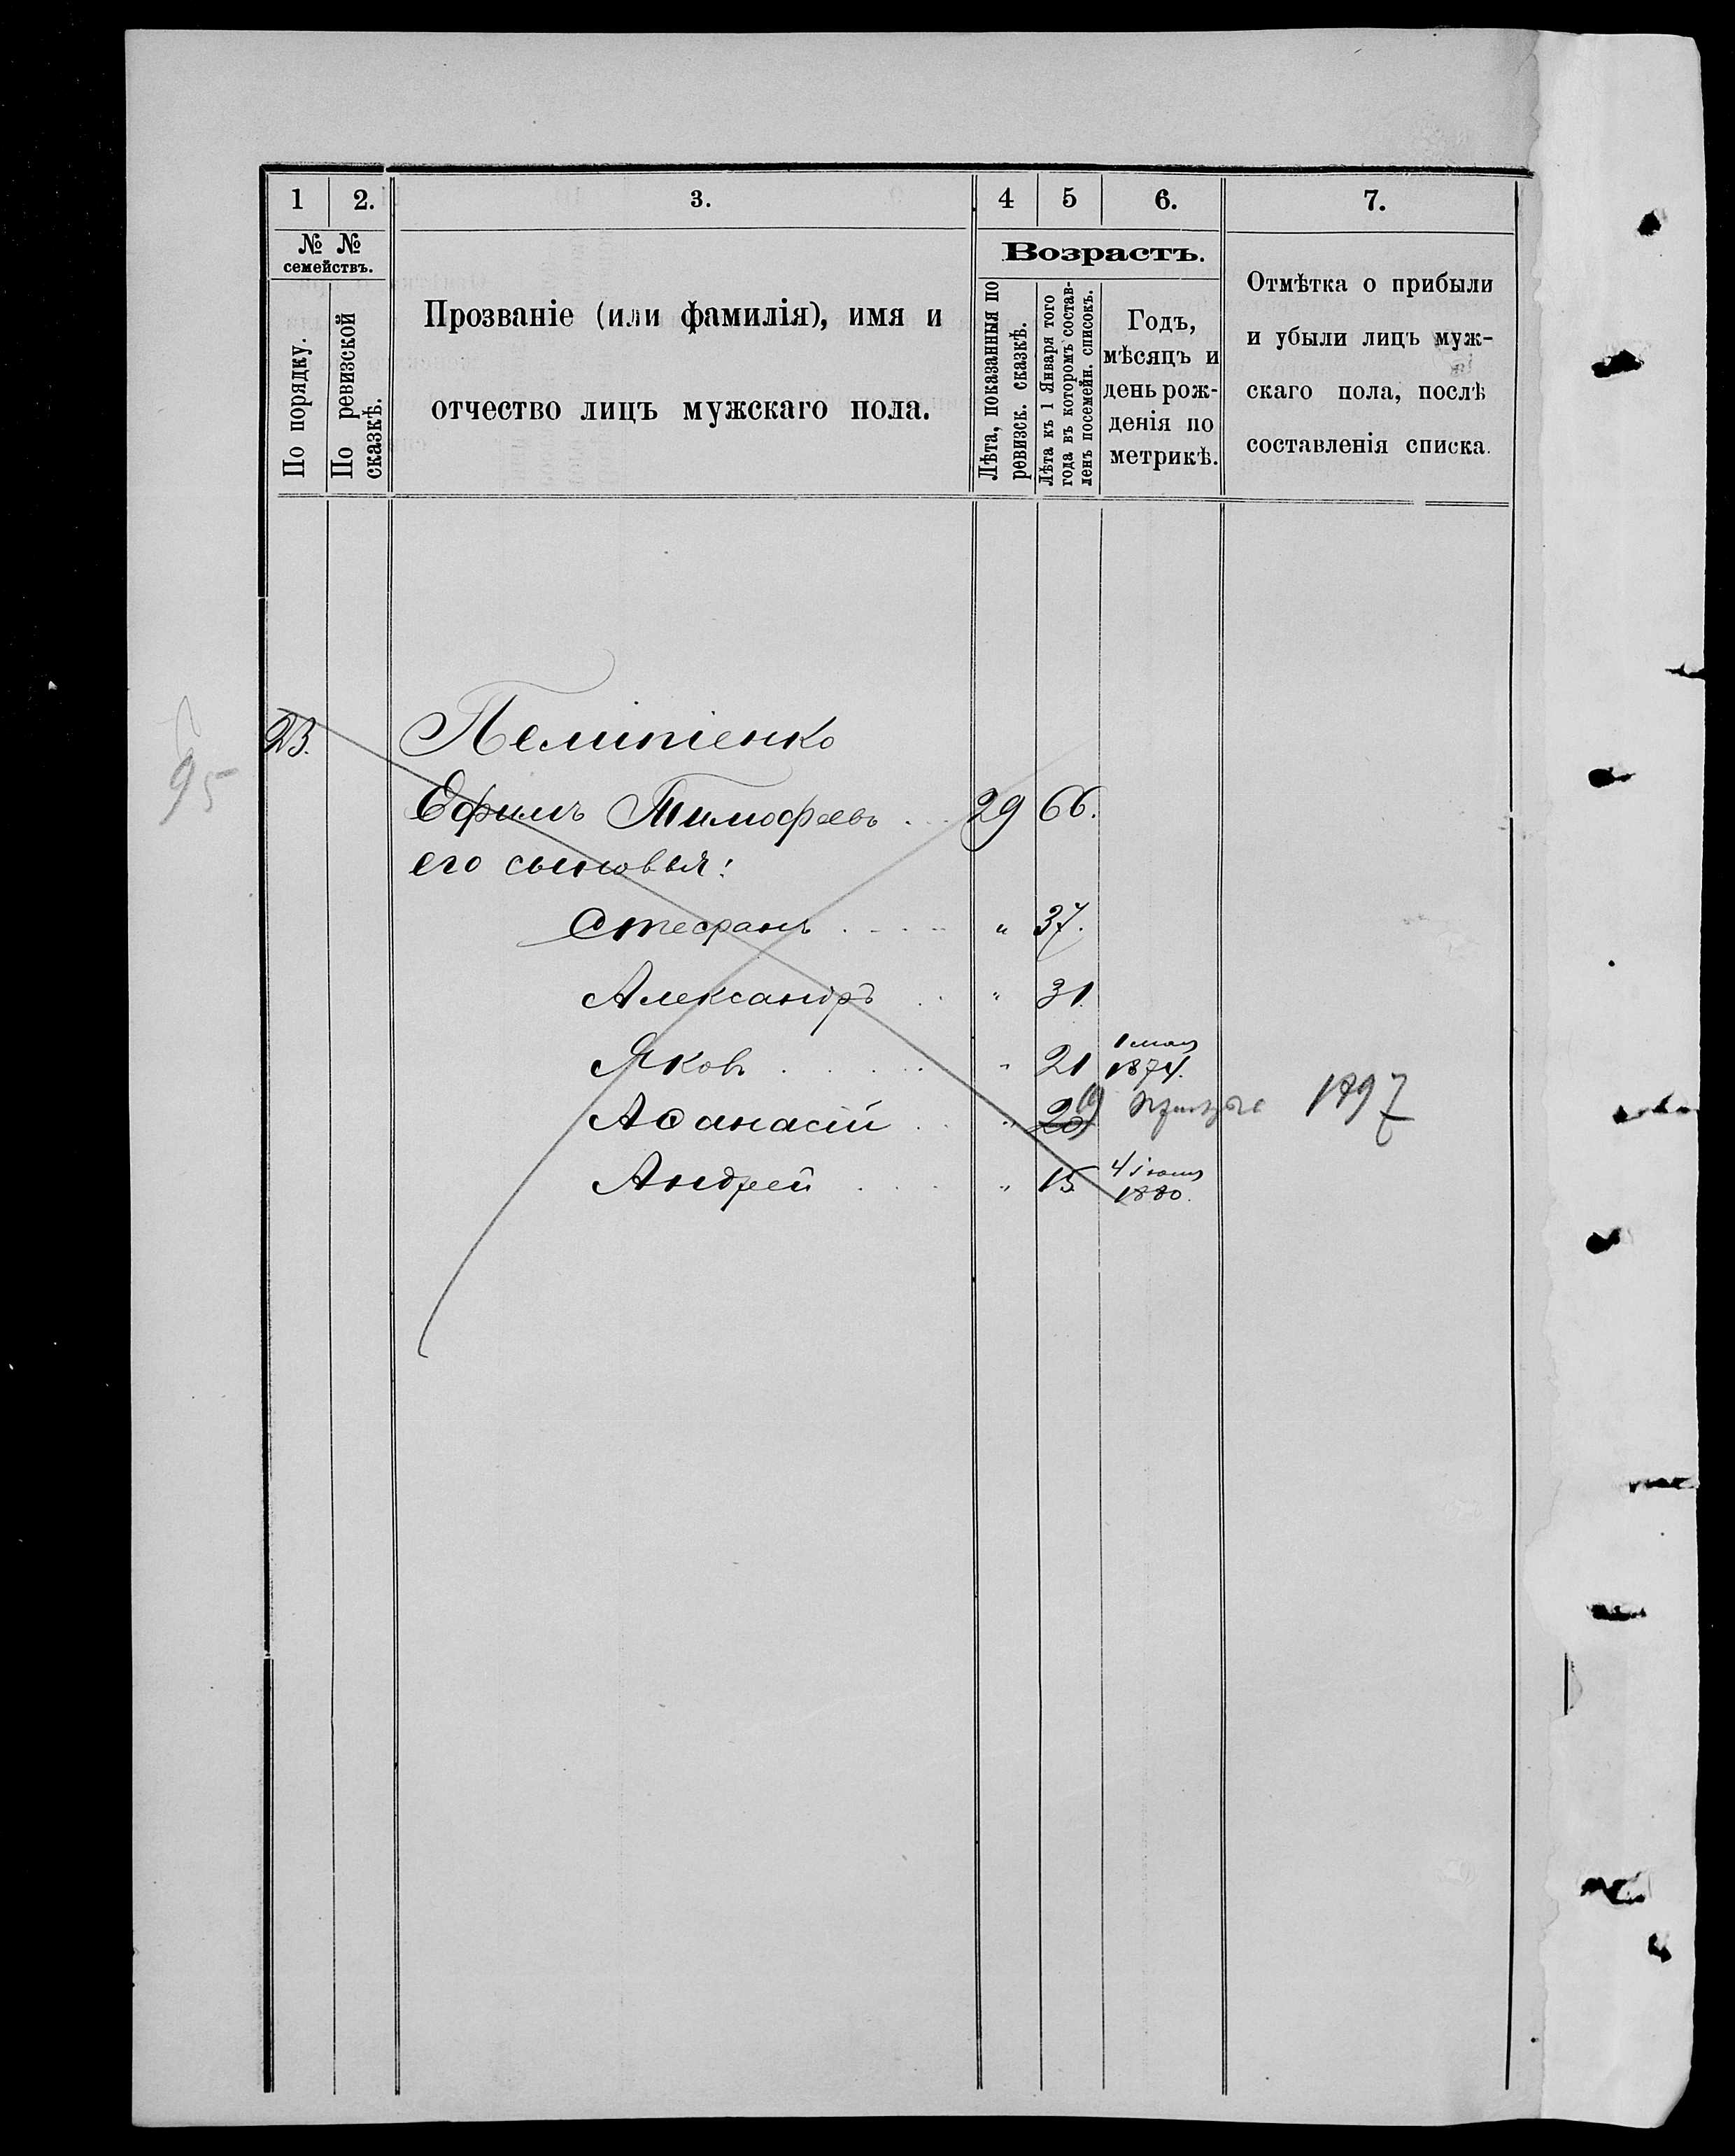 1 2. 3. 4 5 6. 7.
№ № семействъ.
По порядку.
По ревизской сказкѣ.
Прозваніе (или фамилія), имя и
отчество лицъ мужскаго пола.
Возрастъ.
Лѣта, показанныя по
ревизск. сказкѣ.
Лѣта къ 1 Января того
года въ которомъ состав-
ленъ посемейн. списокъ.
Годъ,
мѣсяцъ и
день рож-
денія по
метрикѣ.
Отмѣтка о прибыли
и убыли лицъ муж-
скаго пола, послѣ
составленія списка.
23.
95
Ефимъ Тимофеевъ 29 66.
его сыновья:
Стефанъ " 37.
Александръ " 31.
Яковъ " 21 1 мая
1874.
Аѳанасій " 20 19 1897
Андрей " 15 4 іюля
1880.